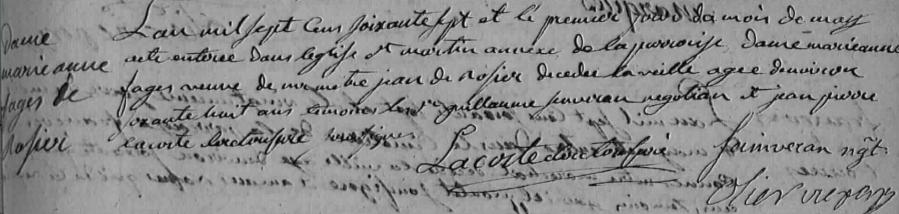 Dame
marie anne
fages de
Rosier
L'an mil sept cens soixante sept et le premier jour du mois de may
a ete enterée dans leglise st martin annexe de la parroisse dame marie anne
fages veuve de me jean de Rosier decedee la veille agee denviron
soixante huit ans temoins les srs guillaume negotian et jean pierre
lacoste soussignes
Lacoste ngt